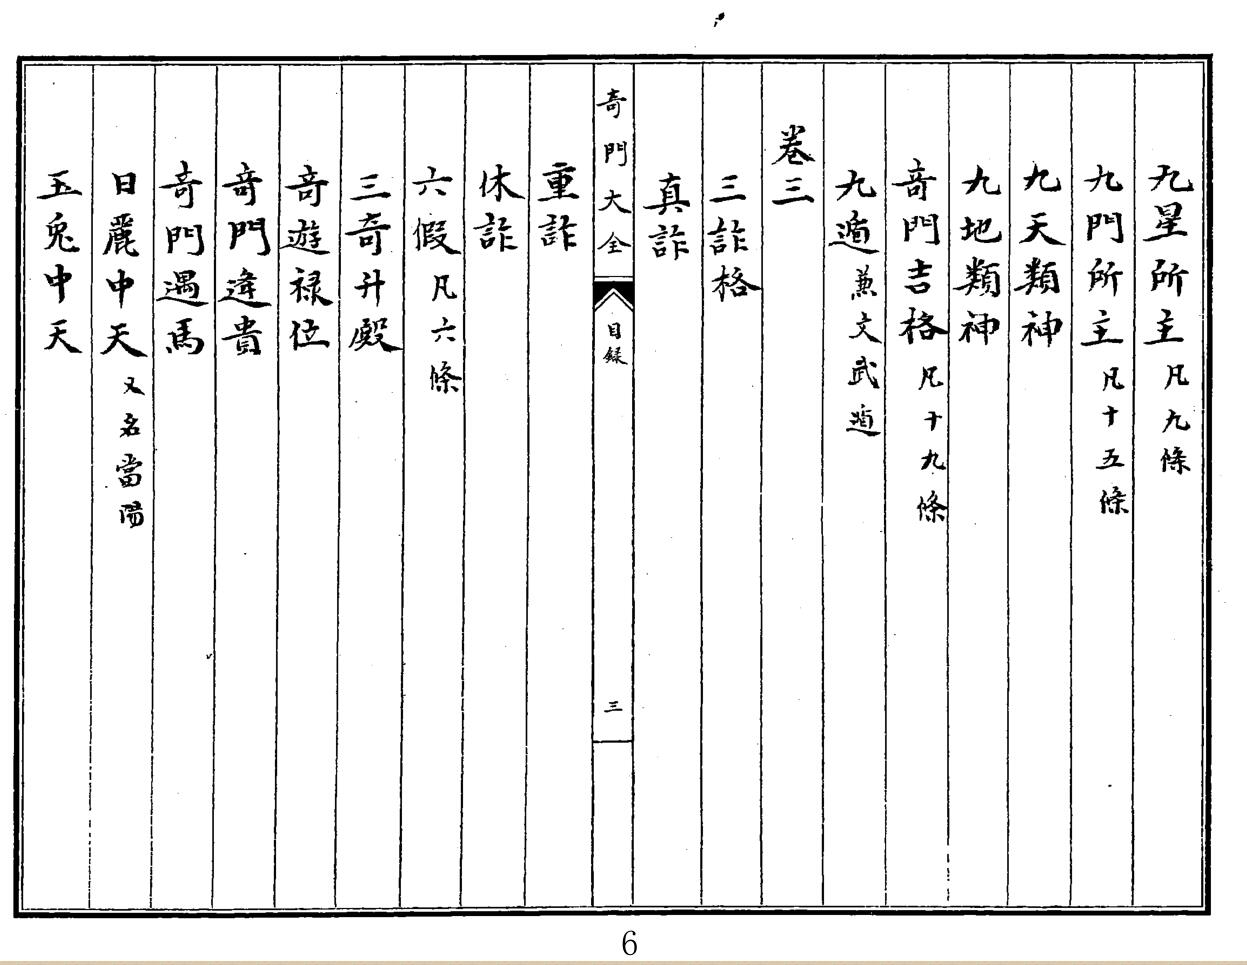 九星所主凡九條
九門所主凡十五條
九天類神
九地類神
奇門吉格凡十九條
九遁兼文武遁
卷三
三詐格
真詐
奇門大全
目録
三
重詐
休詐
六假凡六條
三奇升殿
奇遊禄位
奇門逢貴
奇門遇馬
日麗中天又名當陽
玉兔中天
6